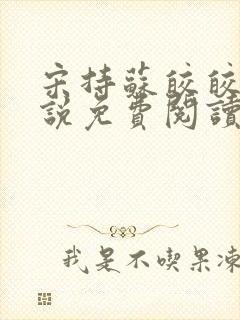 宋持蘇皎皎
說免費閱讀
我是不喫果凍